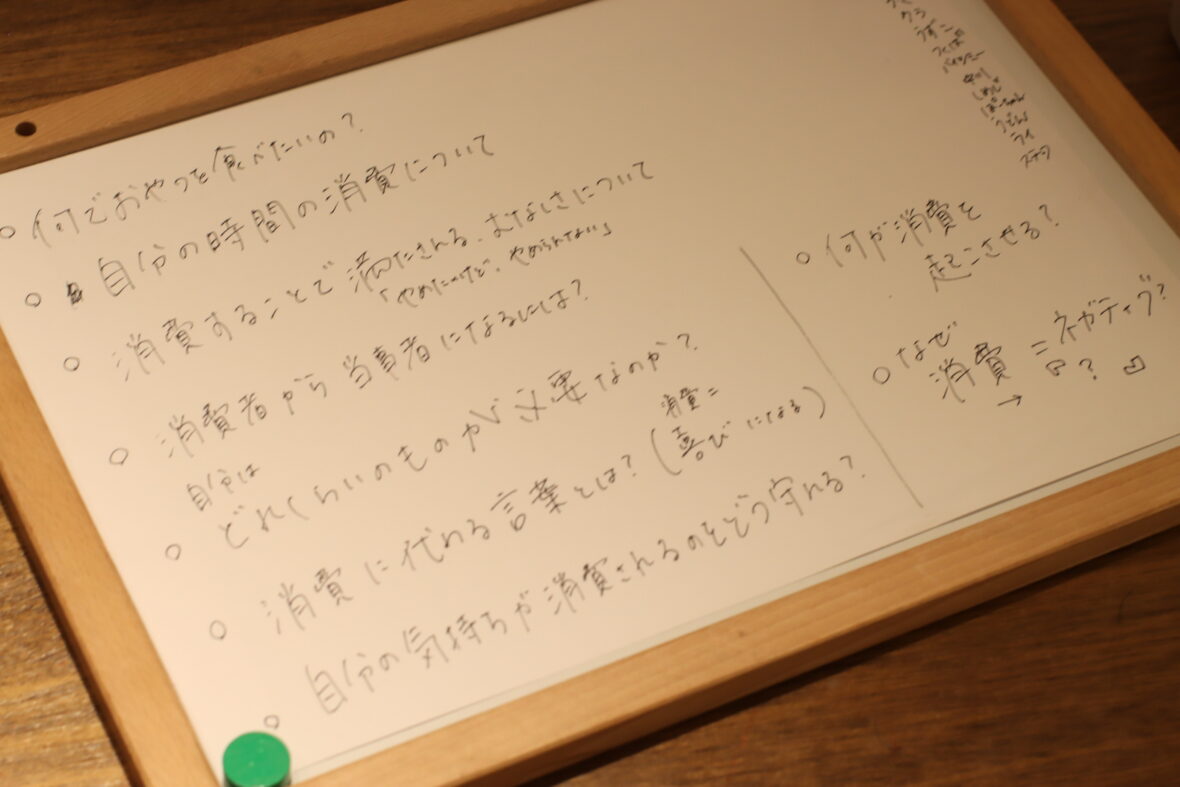 ○ 何でおやつを食べたいの?
○ 自分の時間の消費について
○ 消費することで満たされる、むなしさについて
「やめたいけど、やめられない」
○ 消費者から当事者になるには?
自分は
○ どれくらいのものが必要なのか?
○ 消費に代わる言葉とは?(消費=喜びになる)
○ 自分の気持ちが消費されるのをどう守れる?
○ 何が消費を
起こさせる?
○ なぜ
消費 = ネガティブ?
→ ?
うずこ
つくば
中川
しめじ
うどん
ライ